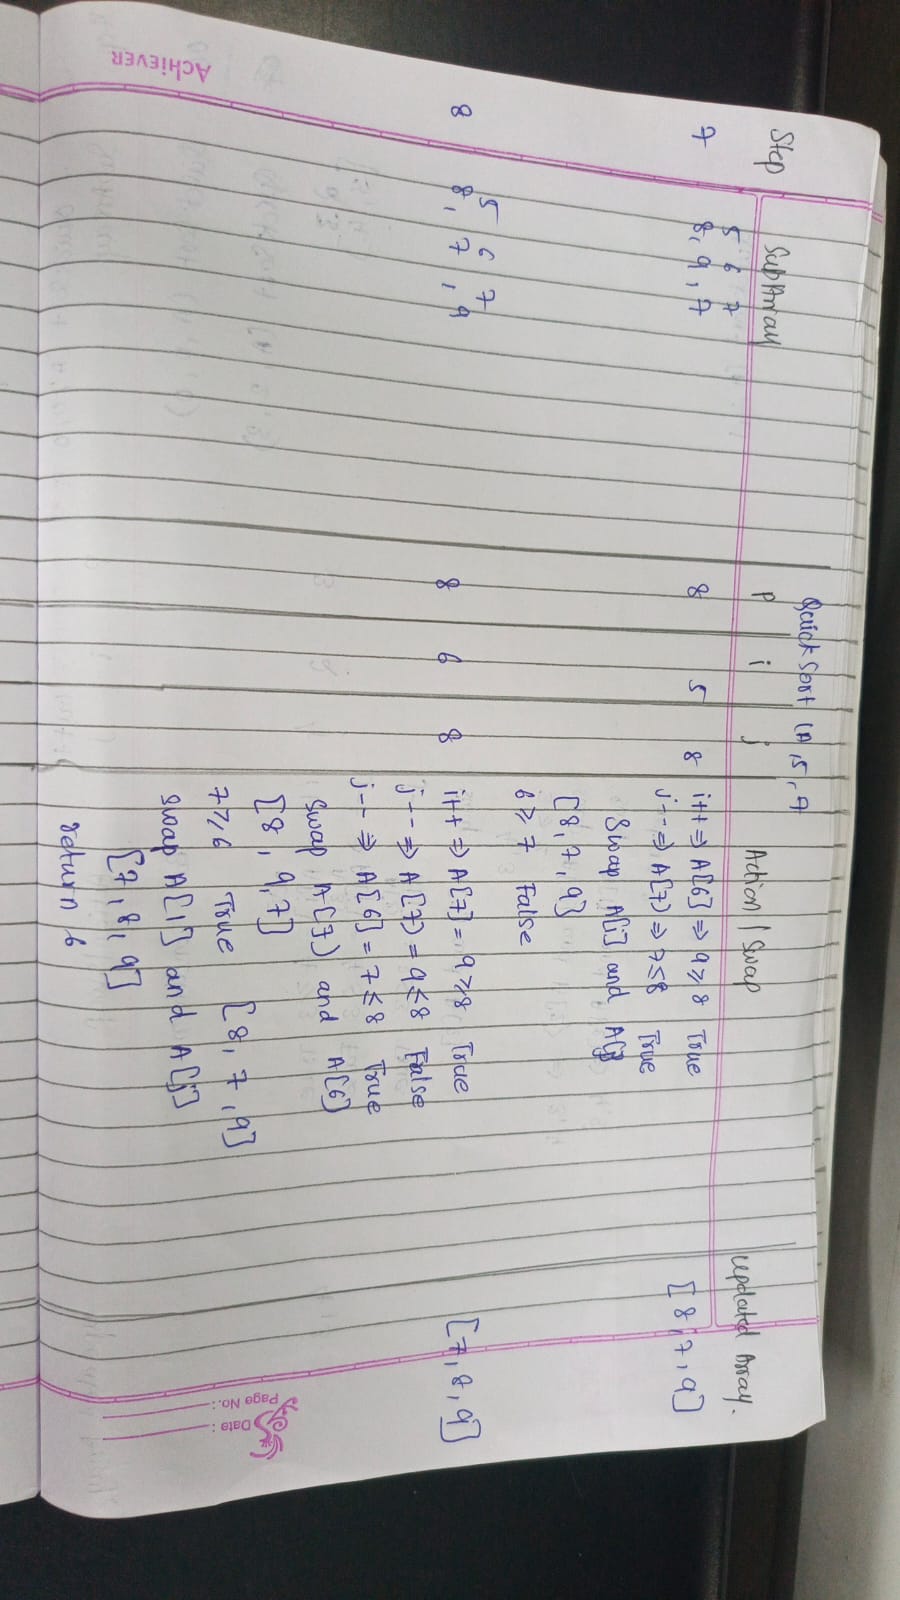 Quick Sort (A, 5, 7
Step SubArray p i j Action / Swap Updated Array.
5 6 7
7 8, 9, 7 8 5 8 i++ => A[6] => 9 ≥ 8 True [8, 7, 9]
j-- => A[7) => 7 ≤ 8 True
Swap A[i] and A[j]
[8, 7, 9]
6 ≥ 7 False
5 6 7
8 8, 7, 9 8 6 8 i++ => A[7] = 9 ≥ 8 True [7, 8, 9]
j-- => A[7) = 9 ≤ 8 False
j-- => A[6] = 7 ≤ 8 True
Swap A[7) and A[6]
[8, 9, 7]
7 ≥ 6 True [8, 7, 9]
Swap A[1] and A[j]
[7, 8, 9]
return 6
ACHIEVER
Page No.:
Date :